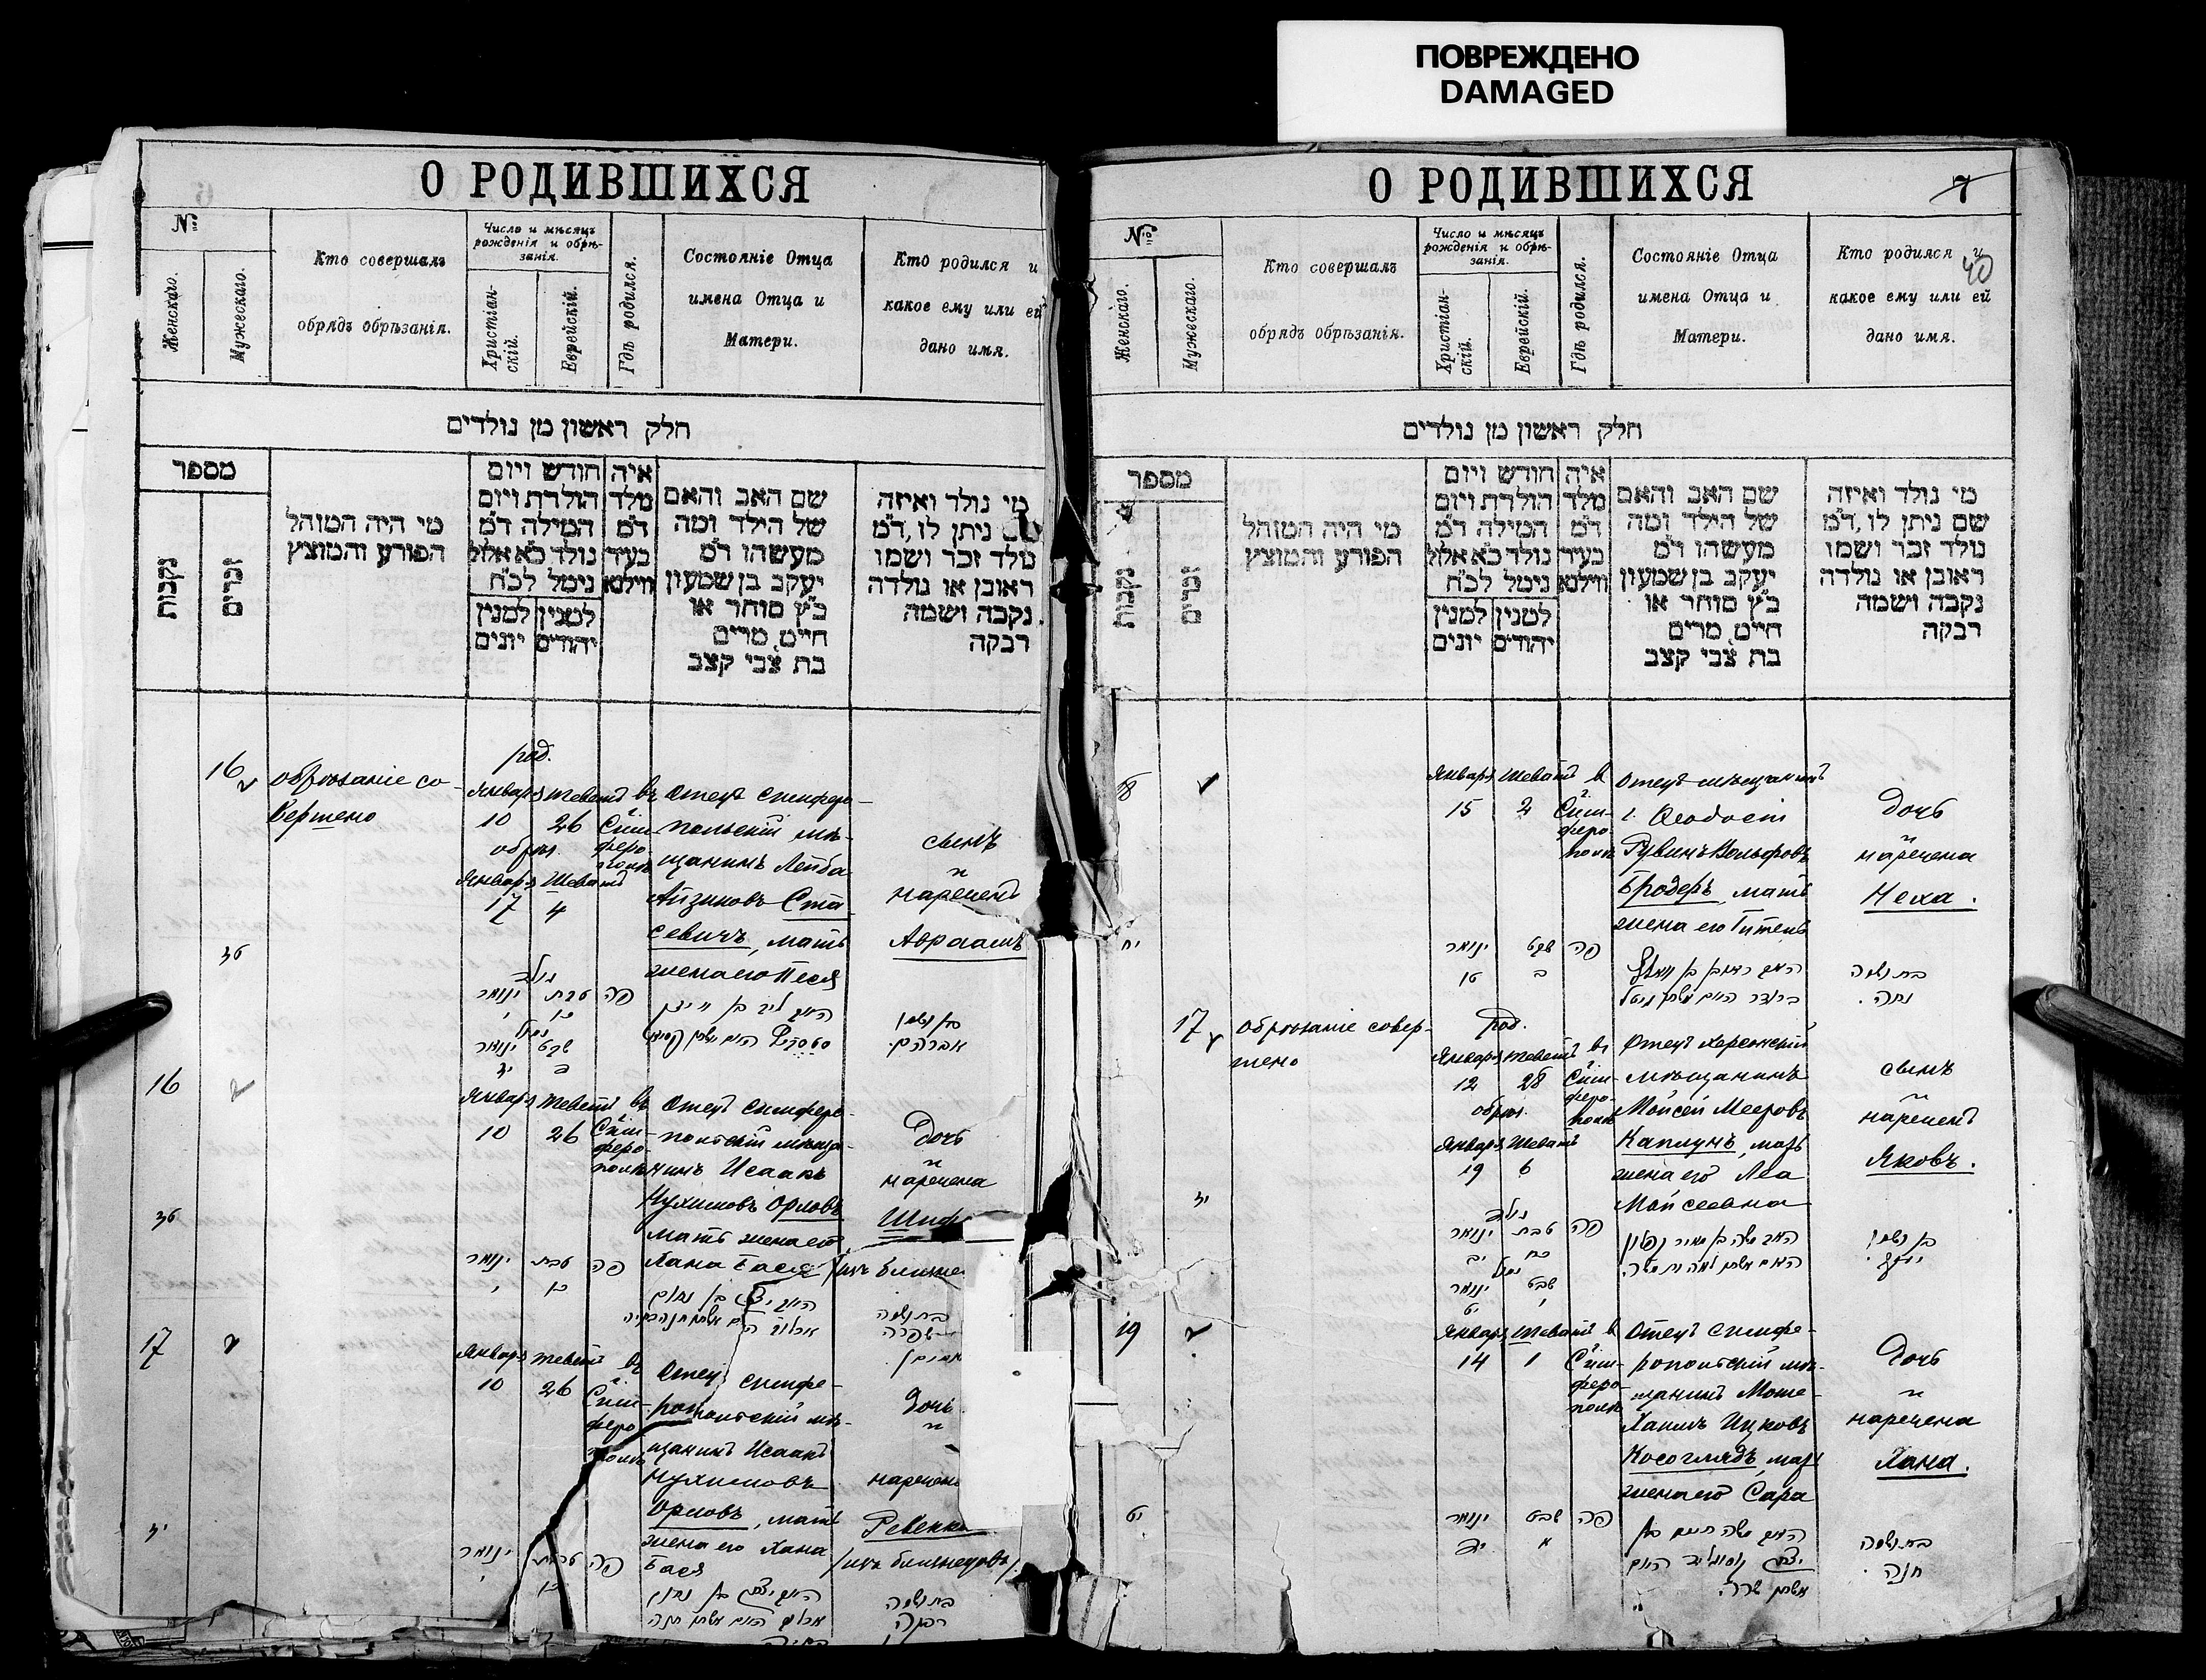 ПОВРЕЖДЕНО
DAMAGED
О РОДИВШИХСЯ
№
Женскаго.
Мужескаго.
Кто совершалъ
обрядъ обрѣзанія.
Число и мѣсяцъ
рожденія и обрѣ-
занія.
Христіан-
скій.
Еврейскій.
Гдѣ родился.
Состояніе Отца
имена Отца и
Матери.
Кто родился и
какое ему или ей
дано имя.
חלק ראשון מן נולדים
מספר
נקבות
זכרים
מי היה המוהל
הפורע והמוצץ
חודש ויום
הולדת ויום
המילה ד"מ
נולד כ"א אלול
נימל לכ"ח
למנין
יהודים
למנין
יונים
איה
מלד
ד"מ
בעיר
ווילנא
שם האב והאם
של הילד ומה
מעשהו ד"מ
יעקב בן שמעון
כ"ץ סוחר או
חייט, מרים
בת צבי קצב
מי נולד ואיזה
ניתן לו, ד"מ
נולד זכר ושמו
ראובן או נולדה
נקבה ושמה
רבקה
16
обрѣзаніе со-
вершено
род.
Января Теветъ
10 26
обрѣз.
Января Шеватъ
17 4
въ
Сим-
феро-
полѣ
Отецъ симферо-
польскій мѣ-
щанинъ Лейба
Айзиковъ Ста-
севичъ, мать
жена его Песя
сынъ
и
нареченъ
Авраамъ
נולד
ינואר טבת פה
נימול
ינואר שבט
בן ושמו
אברהם.
16
Января Теветъ въ
10 26
Сим-
феро-
полѣ
Отецъ симферо-
польскій мѣща-
нинъ Исаакъ
Нухимовъ Орловъ
мать жена его
Хана Бася
Дочь
и
наречена
Шиф
/изъ близне
ינואר טבת פה
בת ושמה
שפרה
17
Января Теветъ въ
10 26
Сим-
феро-
полѣ
Отецъ симфе-
ропольскій мѣ-
щанинъ Исаакъ
Нухимовъ
Орловъ, мать
жена его Хана
Бася
Дочь
и
наречен
Ревекка
/изъ близнецовъ/.
ינואר טבת פה
בת ושמה
רבקה
О РОДИВШИХСЯ
7
40
№
Женскаго.
Мужескаго.
Кто совершалъ
обрядъ обрѣзанія.
Число и мѣсяцъ
рожденія и обрѣ-
занія.
Христіан-
скій.
Еврейскій.
Гдѣ родился.
Состояніе Отца
имена Отца и
Матери.
Кто родился и
какое ему или ей
дано имя.
חלק ראשון מן נולדים
מספר
נקבות
זכרים
מי היה המוהל
הפורע והמוצץ
חודש ויום
הולדת ויום
המילה ד"מ
נולד כ"א אלול
נימל לכ"ח
למנין
יהודים
למנין
יונים
איה
מלד
ד"מ
בעיר
ווילנא
שם האב והאם
של הילד ומה
מעשהו ד"מ
יעקב בן שמעון
כ"ץ סוחר או
חייט, מרים
בת צבי קצב
מי נולד ואיזה
שם ניתן לו, ד"מ
נולד זכר ושמו
ראובן או נולדה
נקבה ושמה
רבקה
18
Января Шеватъ в
15 2
Сим-
феро-
полѣ
Отецъ мѣщанинъ
г. Ѳеодосіи
Рувинъ Вольфовъ
Бродеръ, мать
жена его Гитель
Дочь
и
наречена
Неха.
יח
ינואר שבט פה
טו ב
בת ושמה
נחה.
17
обрѣзаніе совер-
шено
род.
Января Теветъ въ
12 28
обрѣз.
Января Шеватъ
19 6
Сим-
феро-
полѣ
Отецъ Херсонскій
мѣщанинъ
Мойсей Мееровъ
Каплунъ, мать
жена его Леа
Мойсеевна
сынъ
и
нареченъ
Яковъ.
יז
נולד
ינואר טבת פה
יב כח
נימול
ינואר שבט
יט ו
בן ושמו
יעקב.
19
Января Шеватъ в
14 1
Сим-
феро-
полѣ
Отецъ симфе-
ропольскій мѣ-
щанинъ Моше-
Хаимъ Ицковъ
Косоглядъ, мать
жена его Сара
Дочь
и
наречена
Хана.
יט
ינואר שבט פה
יד א
האב משה חיים בן
יצחק קוסוגליד האם
אשתו שרה.
בת ושמה
חנה.